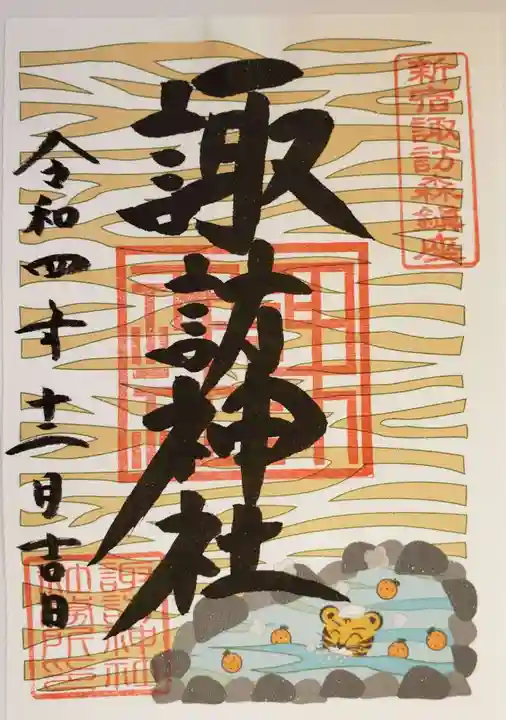 新宿諏訪森鎮座
諏訪神社
令和四年十二月吉日
諏訪神社
社務所印